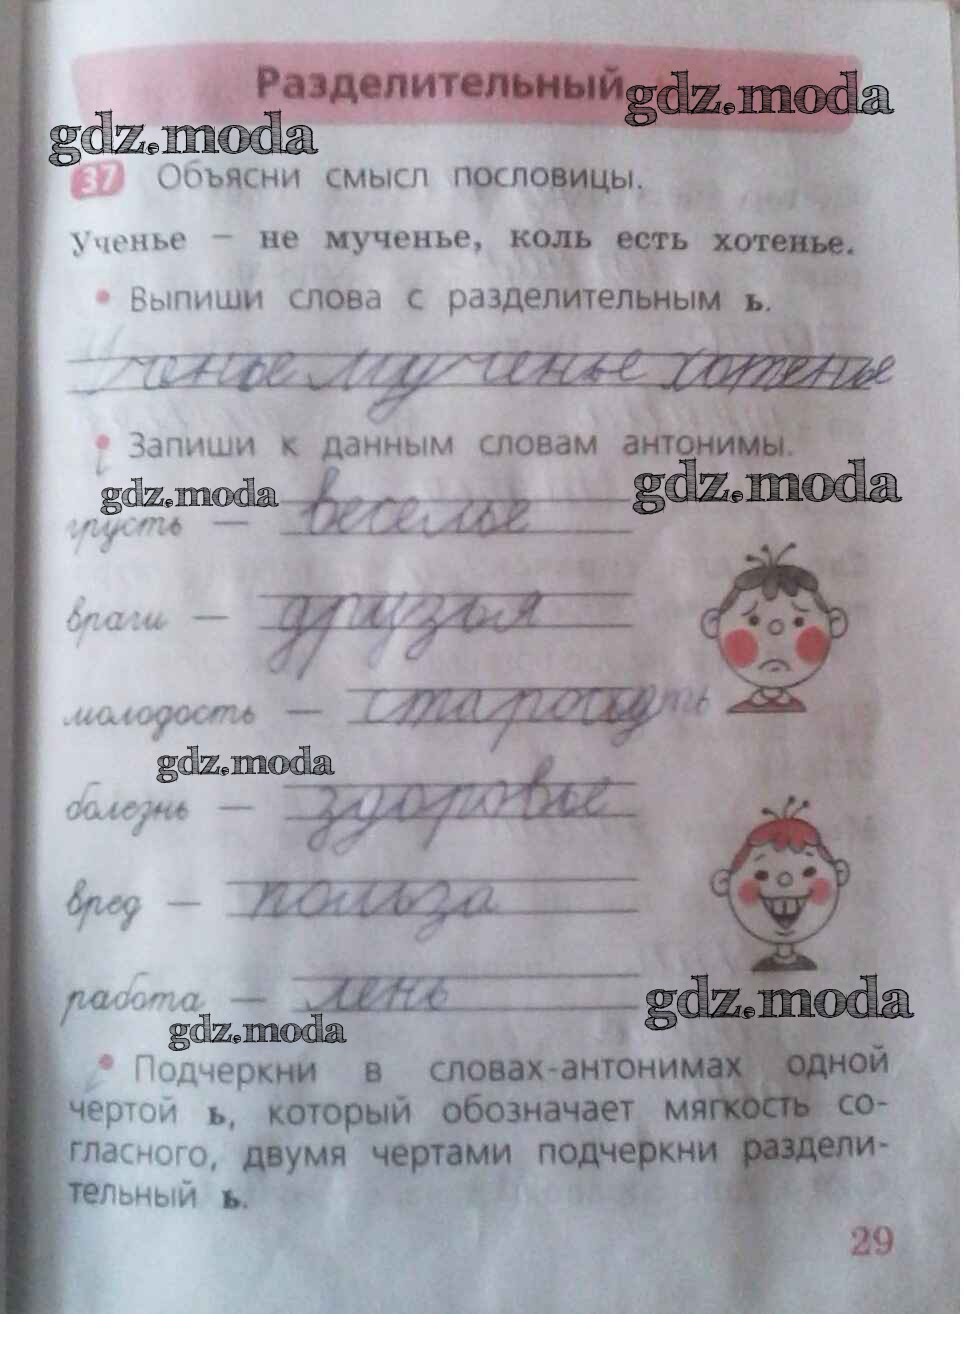 Разделительный
gdz.moda
gdz.moda
37 Объясни смысл пословицы.
Ученье – не мученье, коль есть хотенье.
• Выпиши слова с разделительным ь.
Ученье мученье хотенье
• Запиши к данным словам антонимы.
gdz.moda
gdz.moda
грусть — веселье
враги — друзья
молодость —
gdz.moda
болезнь — здоровье
вред — польза
работа — лень
gdz.moda
gdz.moda
• Подчеркни в словах-антонимах одной
чертой ь, который обозначает мягкость со-
гласного, двумя чертами подчеркни раздели-
тельный ь.
29